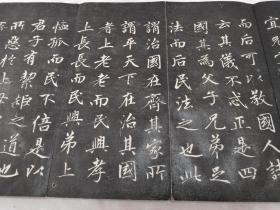 而后可以教國人詩
云其儀不忒正是四
國其為父子兄弟足
法而后民法之也此
謂治國在齊其家所
謂平天下在治其國
者上老老而民興孝
上長長而民興弟上
恤孤而民不倍是以
君子有絜矩之道也
所惡於上